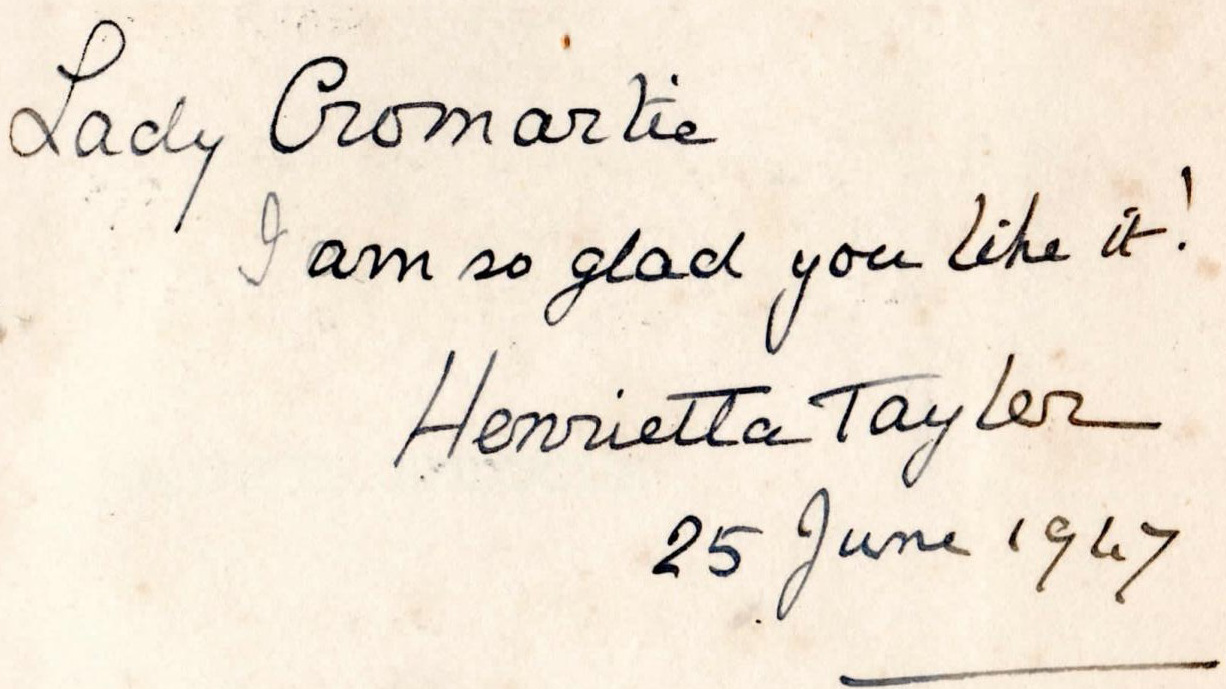 Lady Cromartie
I am so glad you like it!
Henrietta Tayler
25 June 1947